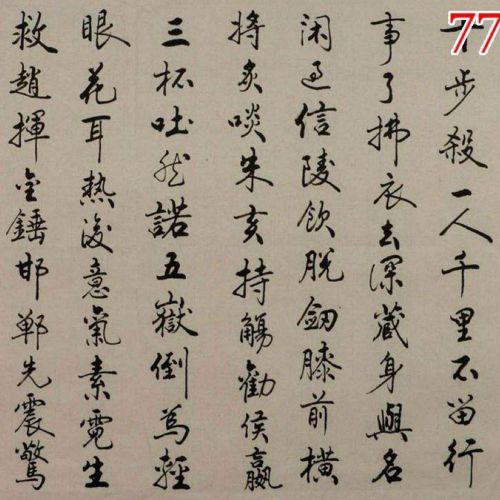 77
十步殺一人千里不留行
事了拂衣去深藏身與名
閑過信陵飲脫劒膝前橫
將炙啖朱亥持觴勸侯嬴
三杯吐然諾五嶽倒為輕
眼花耳熱後意氣素霓生
救趙揮金錘邯鄲先震驚